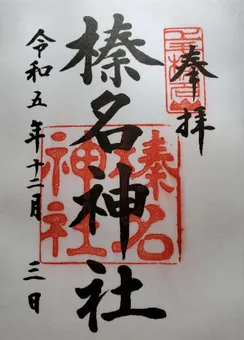 奉拝
榛名神社
令和五年十二月三日
榛名神社